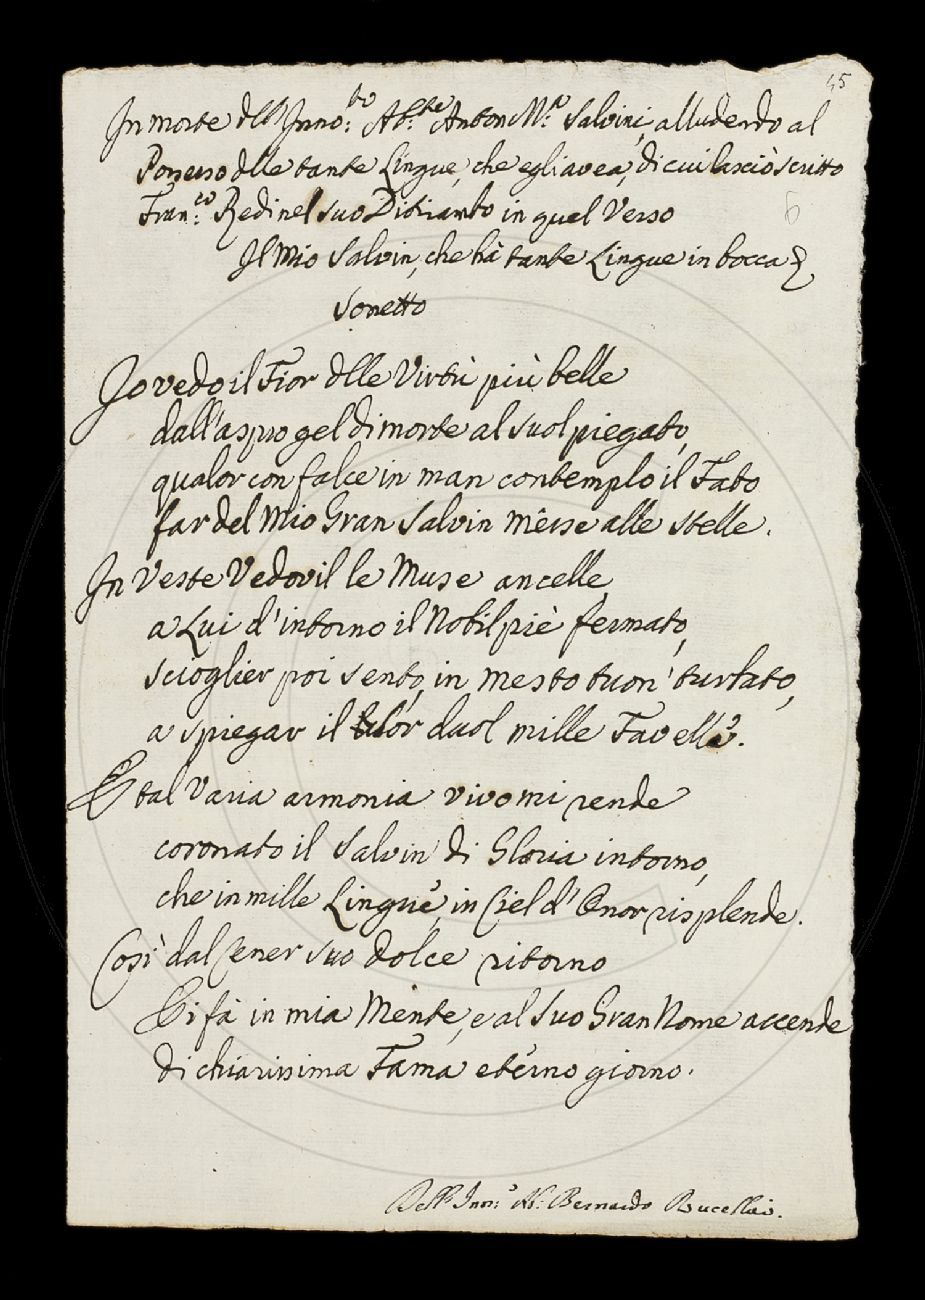 45
In morte dll' Inno:to Ab:te Anton M:a Salvini, alludendo al
Possesso dlle tante Lingue, che egli avea, di cui lasciò scritto
Fran:co Redi nel suo Ditirambo in quel Verso
6
Il Mio Salvin, che hà tante Lingue in bocca
Sonetto
Io vedo il Fior dlle Virtù più belle
dall'aspro gel di morte al suol piegato,
qualor con falce in man contemplo il Fato
far del Mio Gran Salvin mêsse alle stelle.
In Veste Vedovil le Muse ancelle,
a Lui d'intorno il Nobil piè fermato,
scioglier poi sento, in mesto tuon' turbato,
a spiegar il lor duol mille Favelle.
E tal Varia armonia vivo mi rende
coronato il Salvin di Gloria intorno,
che in mille Lingue, in Ciel d'Onor risplende.
Così dal Cener suo dolce ritorno
Ei fà in mia Mente, e al Suo Gran Nome accende
di chiarissima Fama eterno giorno.
Dell' Inn:o Ab: Bernardo Bucellai.